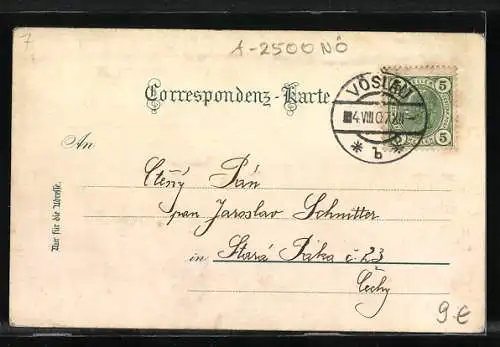 7
A-2500 NÖ
Correspondenz-Karte
VÖSLAU
* b *
5
5
An
Ctěný Pán
pan Jaroslav Schnitter
in Stará Paka č. 23
Čechy
Nur für die Adresse.
9€